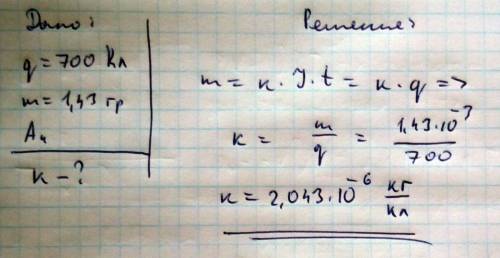 Дано:
q = 700 Кл
m = 1,43 гр
Au
k - ?
Решение:
m = k · I · t = k · q =>
k = m/q = 1,43·10⁻³/700
k = 2,043·10⁻⁶ кг/кл